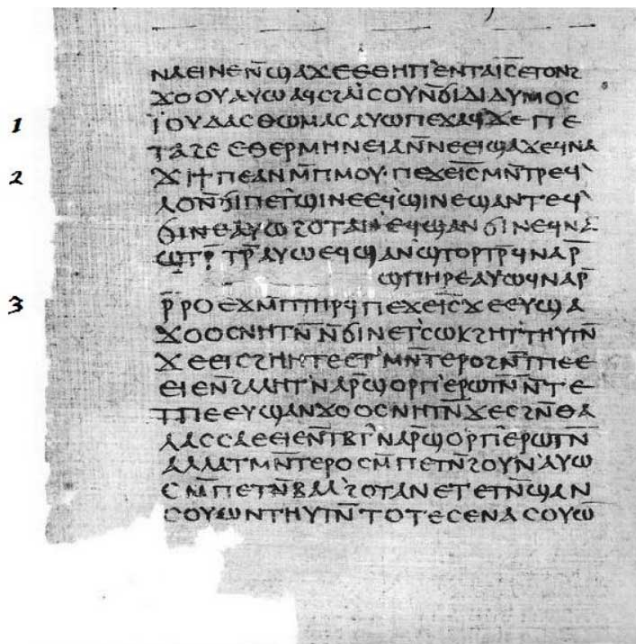 ⲛⲁⲉⲓⲛⲉⲛ̄ϣⲁϫⲉⲉⲑⲏⲡ'ⲉⲛⲧⲁⲓ̅ⲥ̅ⲉⲧⲟⲛϩ
ϫⲟⲟⲩⲁⲩⲱⲁϥⲥϩⲁⲓⲥⲟⲩⲛ̄ϭⲓⲇⲓⲇⲩⲙⲟⲥ
1 ⲓ̈ⲟⲩⲇⲁⲥⲑⲱⲙⲁⲥⲁⲩⲱⲡⲉϫⲁϥϫⲉⲡⲉ
ⲧⲁϩⲉⲉⲑⲉⲣⲙⲏⲛⲉⲓⲁⲛ̄ⲛⲉⲉⲓϣⲁϫⲉϥⲛⲁ
2 ϫⲓϯⲡⲉⲁⲛⲙ̄ⲡⲙⲟⲩ·ⲡⲉϫⲉⲓ̅ⲥ̅ⲙⲛ̄ⲧⲣⲉϥ'
ⲗⲟⲛ̄ϭⲓⲡⲉⲧ'ϣⲓⲛⲉⲉϥ'ϣⲓⲛⲉϣⲁⲛⲧⲉϥ'
ϭⲓⲛⲉⲁⲩⲱϩⲟⲧⲁⲛⲉϥϣⲁⲛϭⲓⲛⲉϥⲛⲁ
ϣⲧⲣ̄ⲧⲣ̄ⲁⲩⲱⲉϥϣⲁⲛϣⲧⲟⲣⲧⲣ̄ϥⲛⲁⲣ̄
ϣⲡⲏⲣⲉⲁⲩⲱϥⲛⲁⲣ̄
3 ⲣ̄ⲣⲟⲉϫⲙ̄ⲡⲧⲏⲣϥⲡⲉϫⲉⲓ̅ⲥ̅ϫⲉⲉⲩϣⲁ
ϫⲟⲟⲥⲛⲏⲧⲛ̄ⲛ̄ϭⲓⲛⲉⲧ'ⲥⲱⲕϩⲏⲧ'ⲧⲏⲩⲧⲛ̄
ϫⲉⲉⲓⲥϩⲏⲏⲧⲉⲉⲧ'ⲙⲛ̄ⲧⲉⲣⲟϩⲛ̄ⲧⲡⲉⲉ
ⲉⲓⲉⲛϩⲁⲗⲏⲧ'ⲛⲁⲣ̄ϣⲟⲣⲡ'ⲉⲣⲱⲧⲛ̄ⲛ̄ⲧⲉ
ⲧⲡⲉⲉⲩϣⲁⲛϫⲟⲟⲥⲛⲏⲧⲛ̄ϫⲉⲥϩⲛ̄ⲑⲁ
ⲗⲁⲥⲥⲁⲉⲉⲓⲉⲛ̄ⲧⲃⲧ'ⲛⲁⲣ̄ϣⲟⲣⲡ'ⲉⲣⲱⲧⲛ̄
ⲁⲗⲗⲁⲧⲙⲛ̄ⲧⲉⲣⲟⲥⲙ̄ⲡⲉⲧⲛ̄ϩⲟⲩⲛ'ⲁⲩⲱ
ⲥⲙ̄ⲡⲉⲧⲛ̄ⲃⲁⲗ'ϩⲟⲧⲁⲛⲉⲧⲉⲧⲛ̄ϣⲁⲛ
ⲥⲟⲩⲱⲛⲧⲏⲩⲧⲛ̄ⲧⲟⲧⲉⲥⲉⲛⲁⲥⲟⲩⲱ